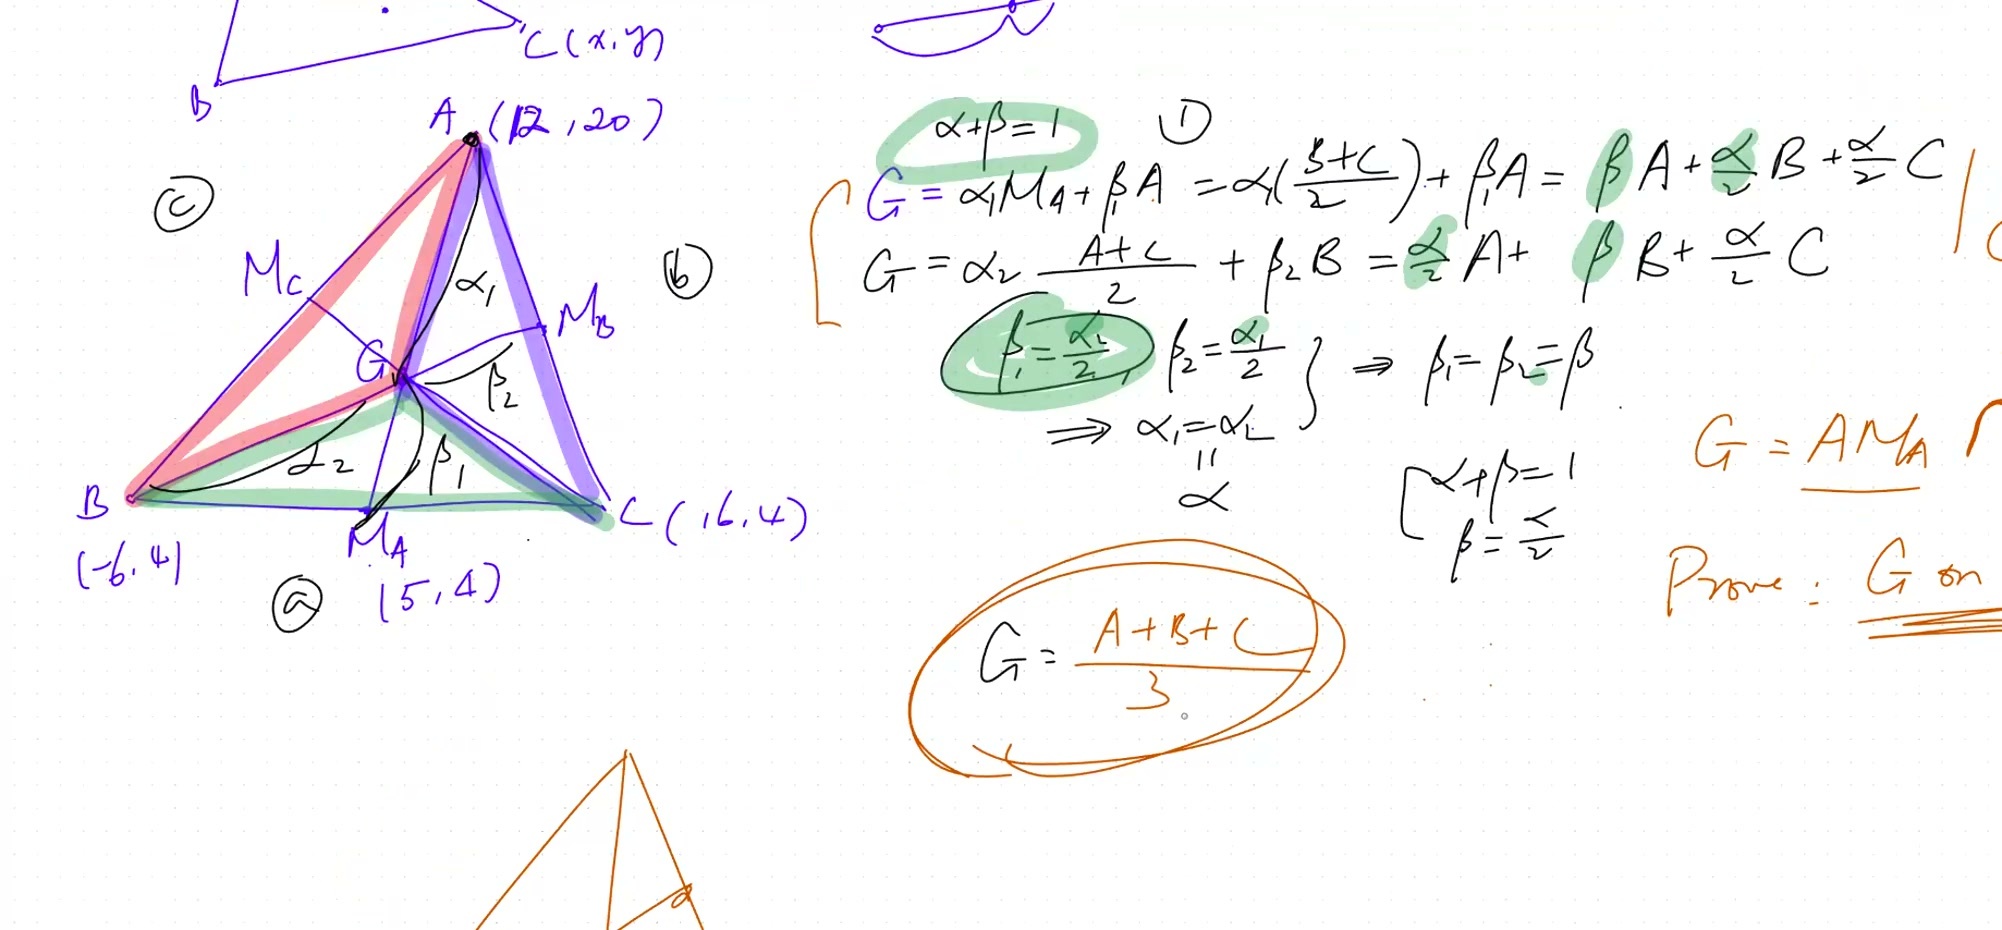 C(x,y)
B
A (12,20)
ⓒ
M_C
α₁
ⓑ
M_B
G
β₂
α₂
β₁
B
C (16,4)
(-6,4)
M_A
(5,4)
ⓐ
α+β=1 ①
G = α₁M_A + β₁A = α₁(B+C/2) + β₁A = βA + α/2 B + α/2 C
G = α₂ A+C/2 + β₂B = α/2 A + βB + α/2 C
β₁ = α₂/2, β₂ = α₁/2 } ⇒ β₁ = β₂ = β
⇒ α₁ = α₂
=
α
α+β=1
β = α/2
G = AM_A
Prove: G on
G = A+B+C/3